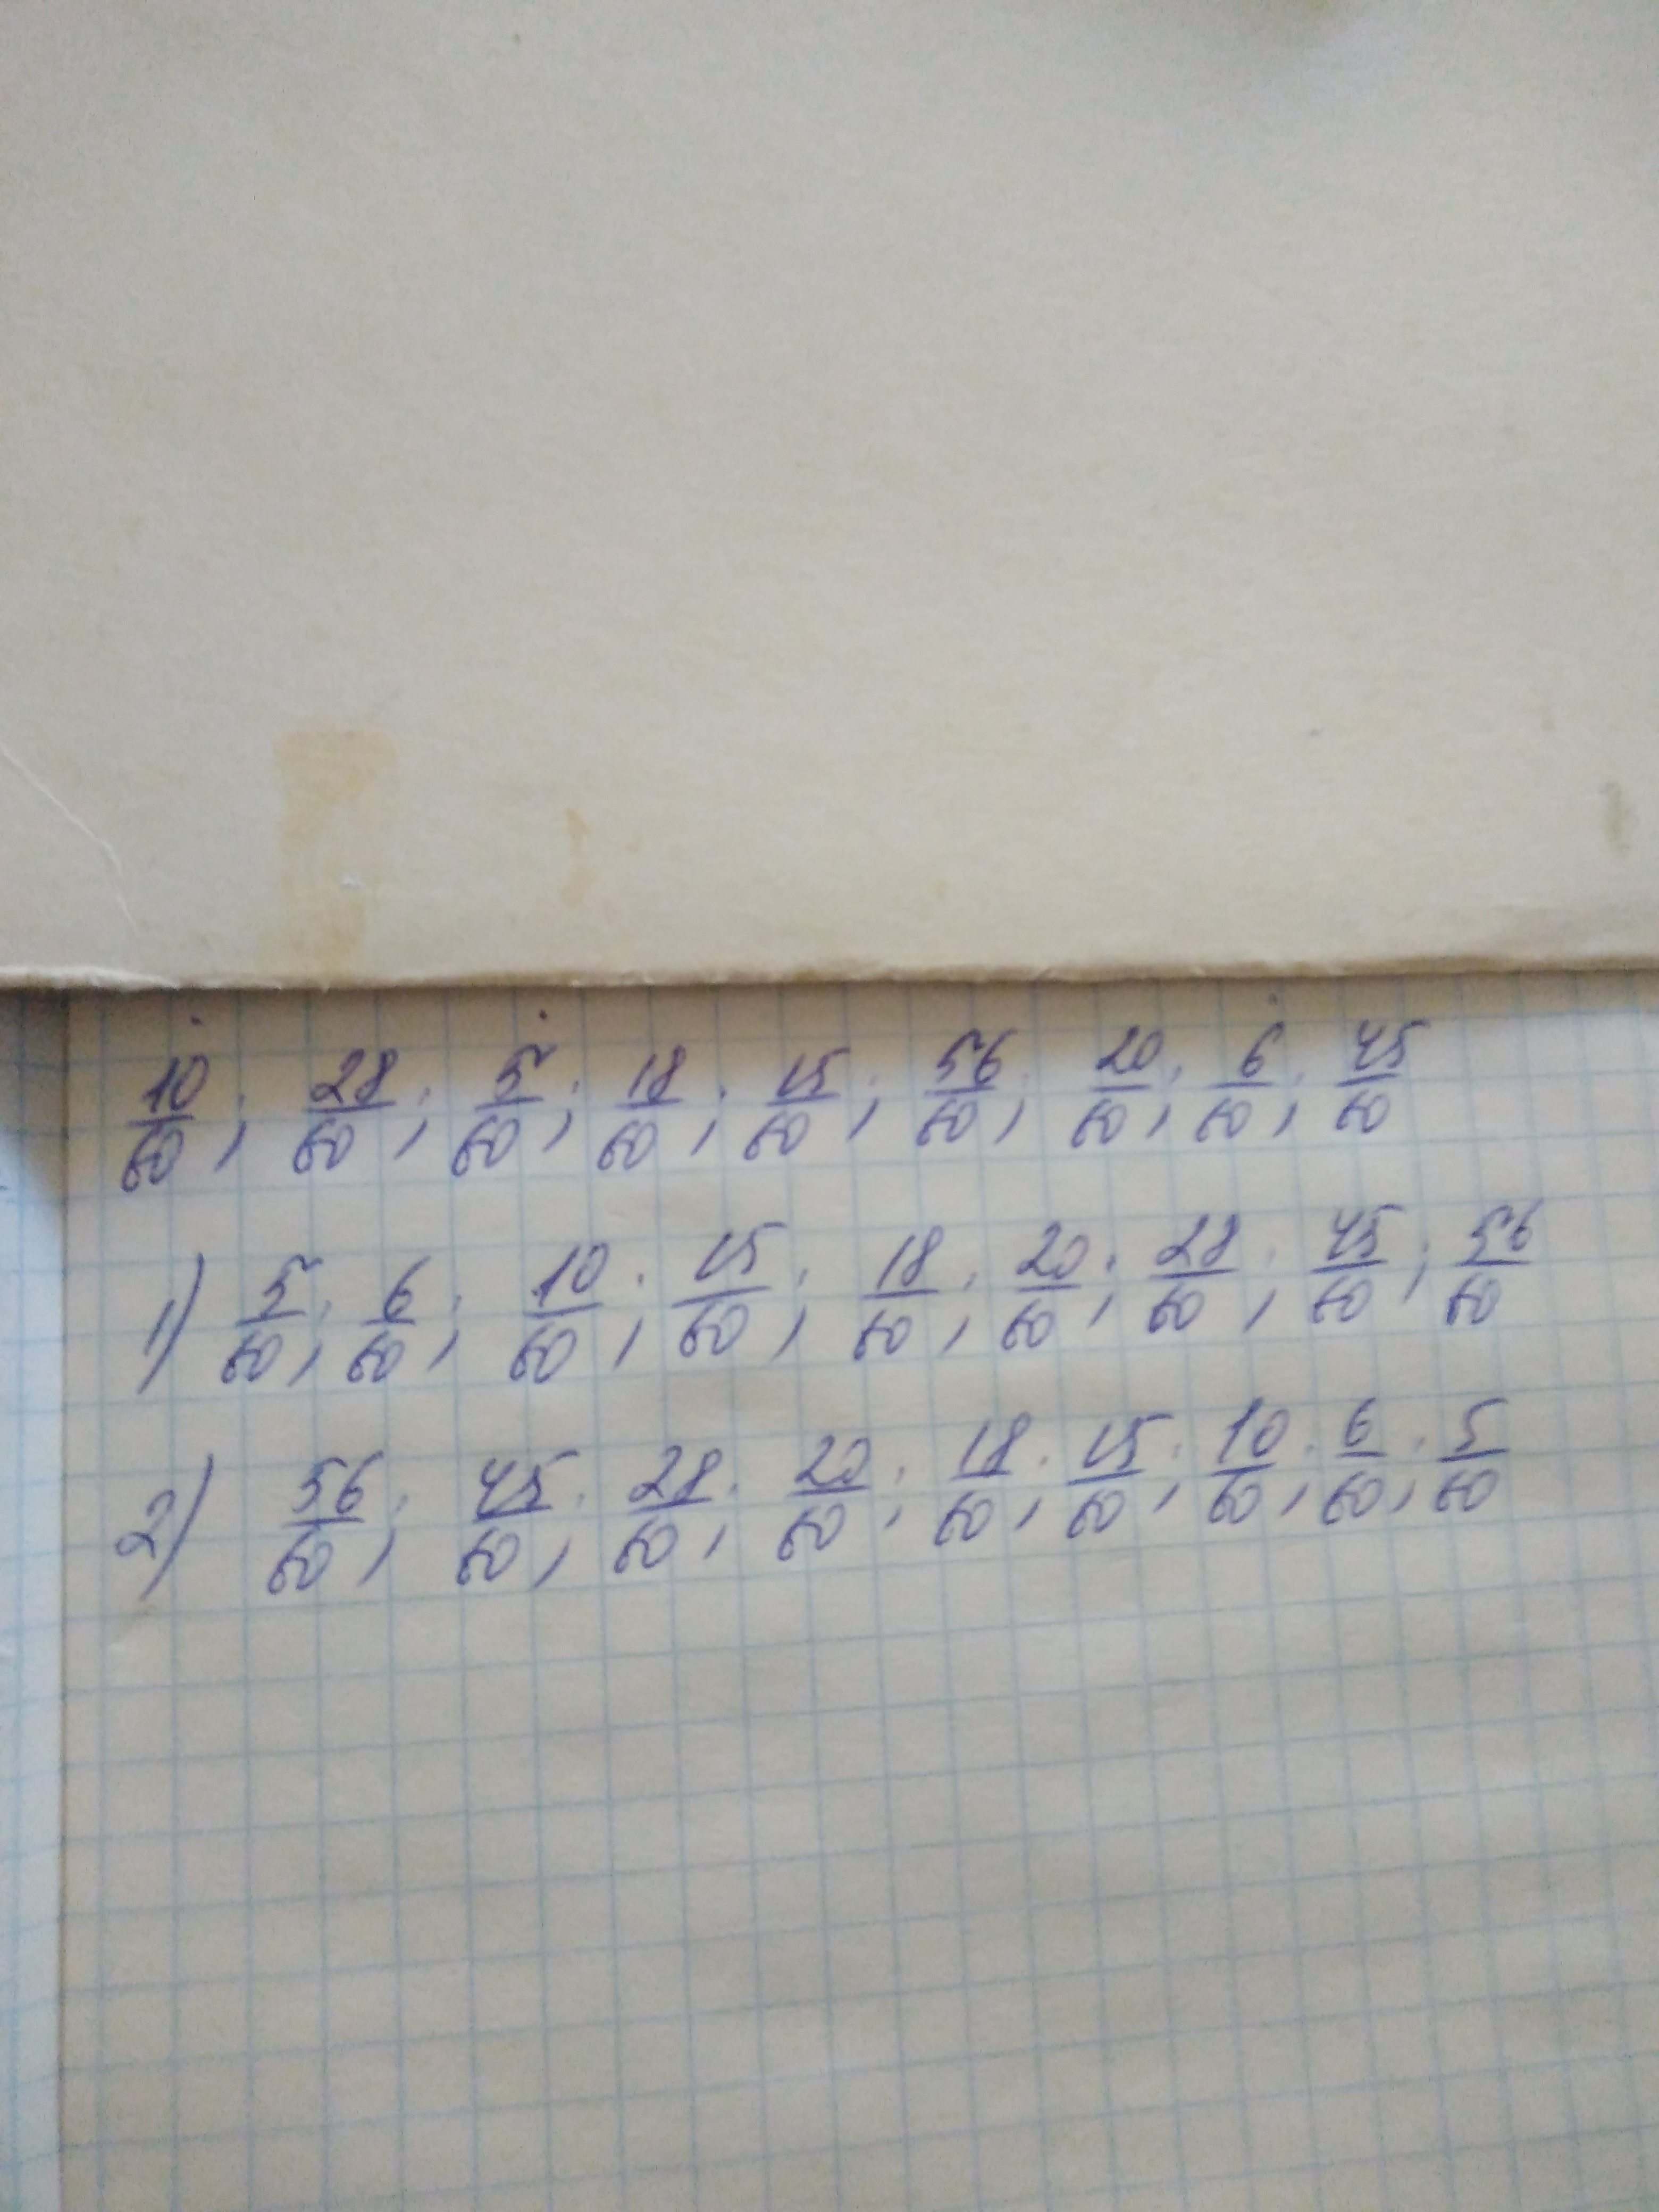 10/60; 28/60; 5/60; 18/60; 15/60; 56/60; 20/60; 6/60; 45/60
1) 5/60; 6/60; 10/60; 15/60; 18/60; 20/60; 28/60; 45/60; 56/60
2) 56/60; 45/60; 28/60; 20/60; 18/60; 15/60; 10/60; 6/60; 5/60